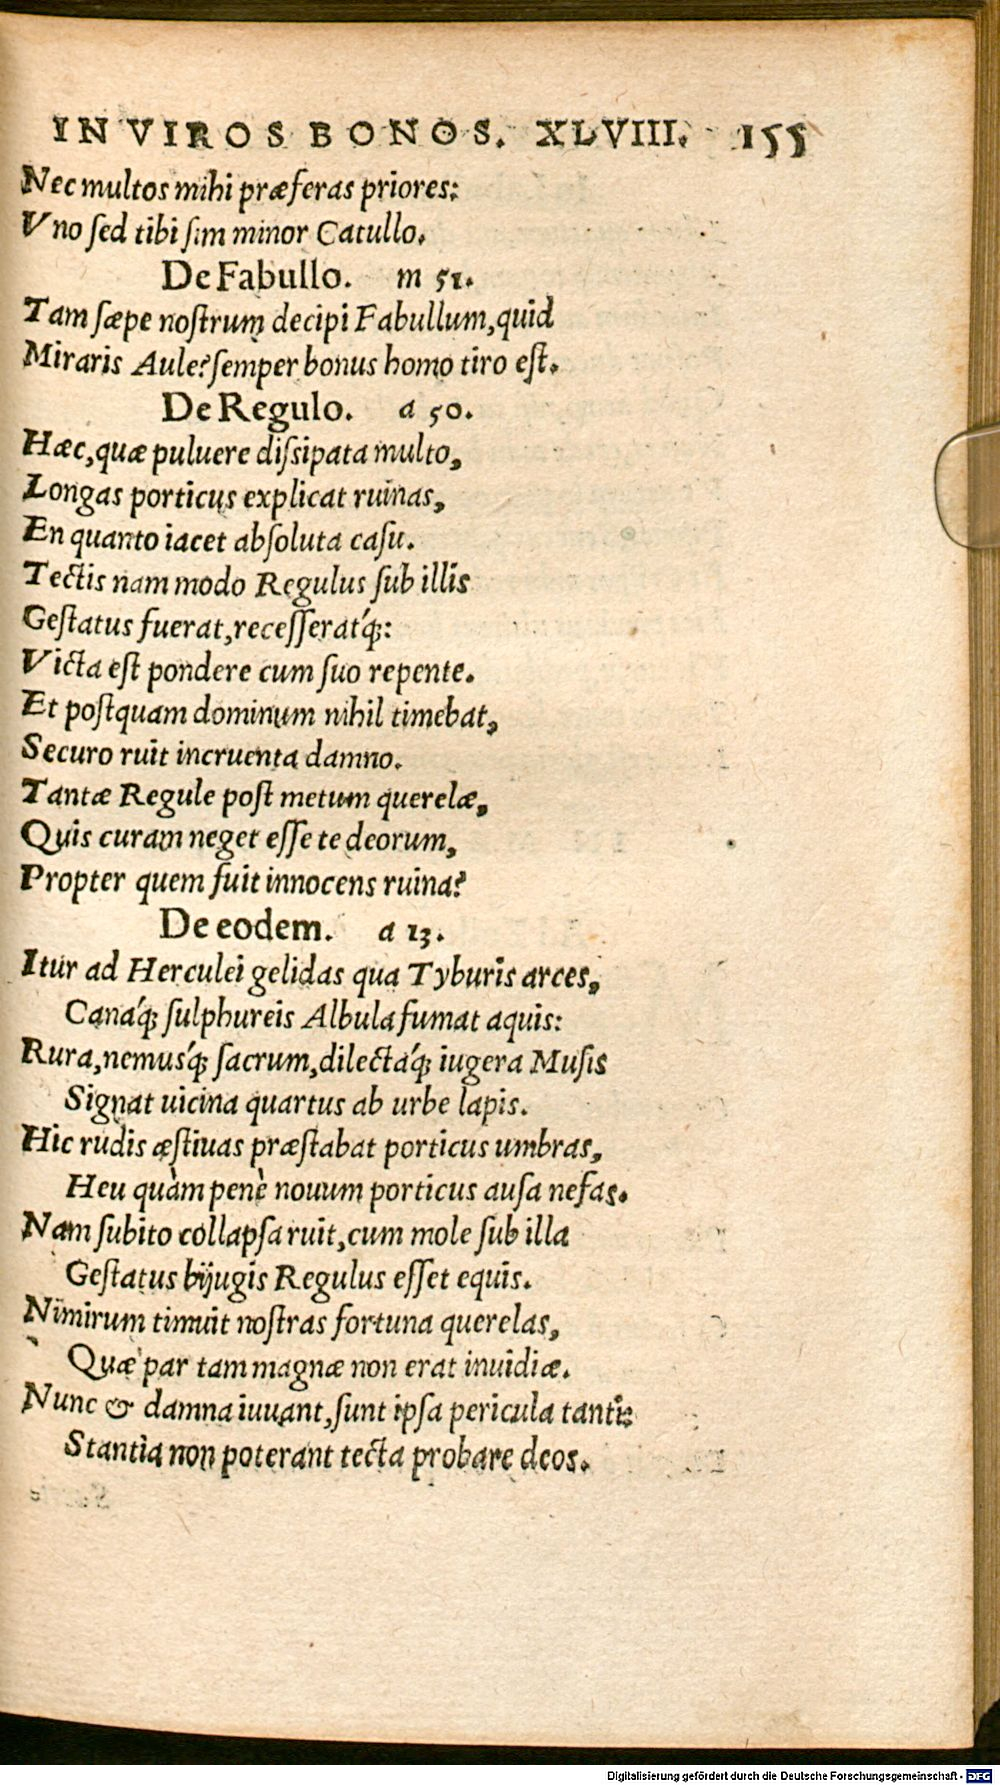 IN VIROS BONOS. XLVIII. 155
Nec multos mihi præferas priores:
Vno ſed tibi ſim minor Catullo.
De Fabullo. m 51.
Tam ſæpe noſtrum decipi Fabullum, quid
Miraris Aule? ſemper bonus homo tiro eſt.
De Regulo. a 50.
Hæc, quæ puluere diſsipata multo,
Longas porticus explicat ruinas,
En quanto iacet abſoluta caſu.
Tectis nam modo Regulus ſub illis
Geſtatus fuerat, receſſeratq́;:
Victa eſt pondere cum ſuo repente.
Et poſtquam dominum nihil timebat,
Securo ruit incruenta damno.
Tantæ Regule poſt metum querelæ,
Quis curam neget eſſe te deorum,
Propter quem fuit innocens ruina?
De eodem. a 13.
Itur ad Herculei gelidas qua Tyburis arces,
Canaq́; ſulphureis Albula fumat aquis:
Rura, nemusq́; ſacrum, dilectaq́; iugera Muſis
Signat uicina quartus ab urbe lapis.
Hic rudis æſtiuas præſtabat porticus umbras,
Heu quàm penè nouum porticus auſa nefas.
Nam ſubito collapſa ruit, cum mole ſub illa
Geſtatus bijugis Regulus eſſet equis.
Nimirum timuit noſtras fortuna querelas,
Quæ par tam magnæ non erat inuidiæ.
Nunc & damna iuuant, ſunt ipſa pericula tanti:
Stantia non poterant tecta probare deos.
Digitalisierung gefördert durch die Deutsche Forschungsgemeinschaft - DFG